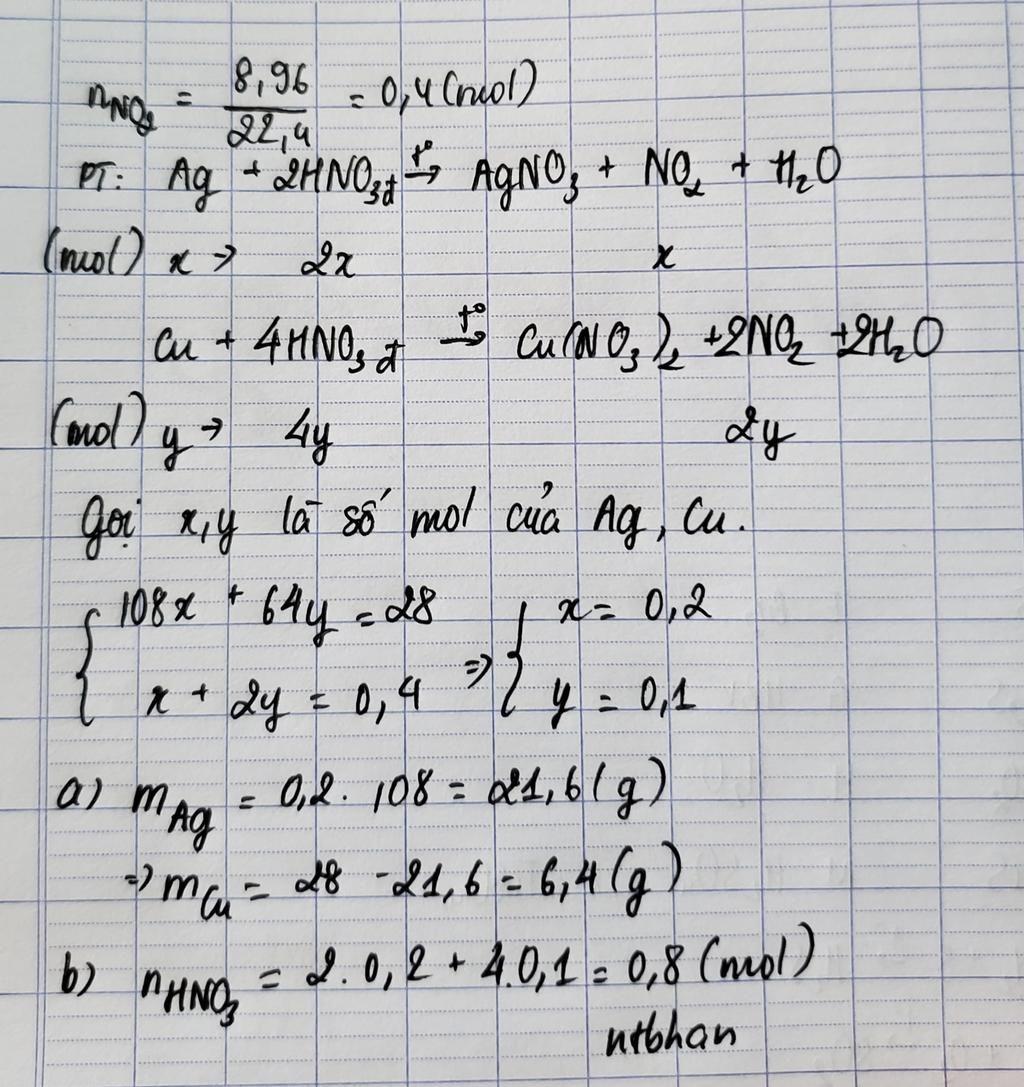 nNO2 = 8,96/22,4 = 0,4 (mol)
PT: Ag + 2HNO3đ t°→ AgNO3 + NO2 + H2O
(mol) x → 2x x
Cu + 4HNO3đ t°→ Cu(NO3)2 + 2NO2 + 2H2O
(mol) y → 4y 2y
Gọi x,y là số mol của Ag, Cu.
{ 108x + 64y = 28 ⇒ { x = 0,2
x + 2y = 0,4 y = 0,1
a) mAg = 0,2 . 108 = 21,6 (g)
⇒ mCu = 28 - 21,6 = 6,4 (g)
b) nHNO3 = 2 . 0,2 + 4.0,1 = 0,8 (mol)
ntbhan